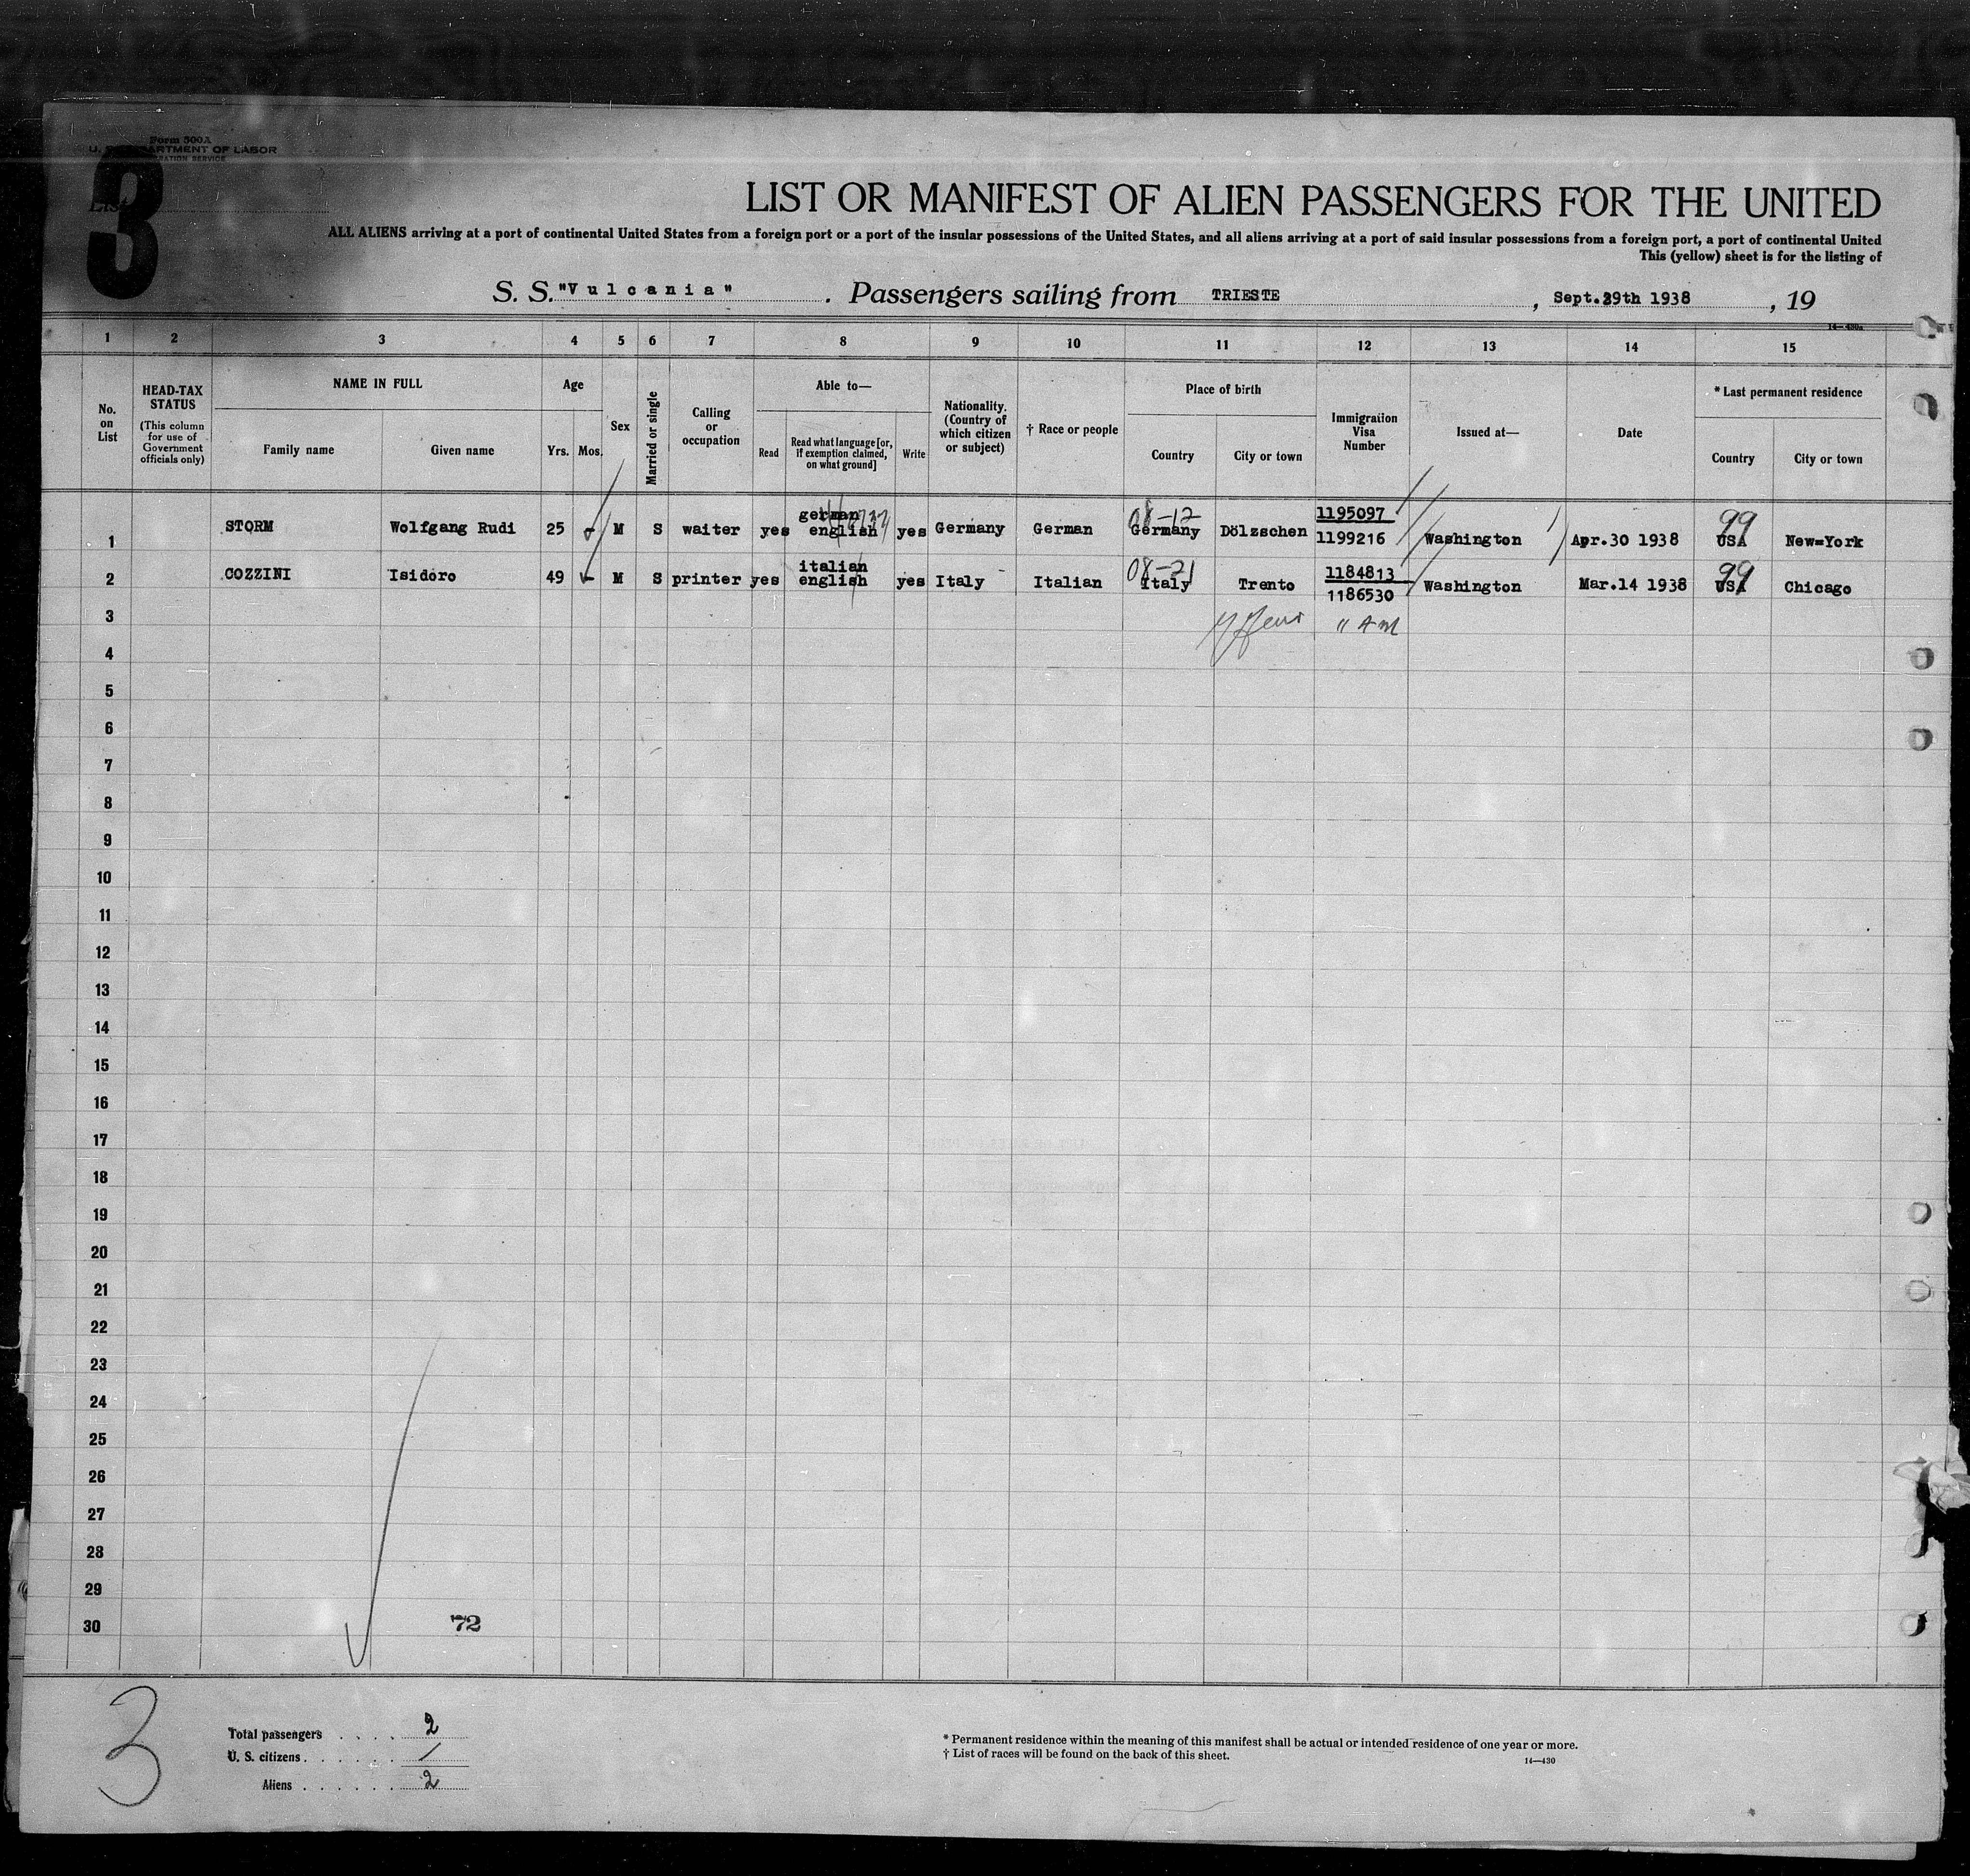 Form 500A
U. S. DEPARTMENT OF LABOR
IMMIGRATION SERVICE
3
List
LIST OR MANIFEST OF ALIEN PASSENGERS FOR THE UNITED
ALL ALIENS arriving at a port of continental United States from a foreign port or a port of the insular possessions of the United States, and all aliens arriving at a port of said insular possessions from a foreign port, a port of continental United
This (yellow) sheet is for the listing of
S. S. "Vulcania". Passengers sailing from TRIESTE, Sept.29th 1938, 19
14—430a
1 2 3 4 5 6 7 8 9 10 11 12 13 14 15
No. on List
HEAD-TAX STATUS
(This column for use of Government officials only)
NAME IN FULL
Family name Given name
Age
Yrs. Mos.
Sex
Married or single
Calling or occupation
Able to—
Read
Read what language [or, if exemption claimed, on what ground]
Write
Nationality. (Country of which citizen or subject)
† Race or people
Place of birth
Country City or town
Immigration Visa Number
Issued at—
Date
* Last permanent residence
Country City or town
1 STORM Wolfgang Rudi 25 - M S waiter yes german english yes Germany German 08-12 Germany Dölzschen 1195097 1199216 Washington Apr.30 1938 99 USA New=York
2 COZZINI Isidoro 49 - M S printer yes italian english yes Italy Italian 08-21 Italy Trento 1184813 1186530 Washington Mar.14 1938 99 USA Chicago
3
4
5
6
7
8
9
10
11
12
13
14
15
16
17
18
19
20
21
22
23
24
25
26
27
28
29
30 72
3
Total passengers . . . . 2
U. S. citizens . . . . . . /
Aliens . . . . . . 2
* Permanent residence within the meaning of this manifest shall be actual or intended residence of one year or more.
† List of races will be found on the back of this sheet.
14—430